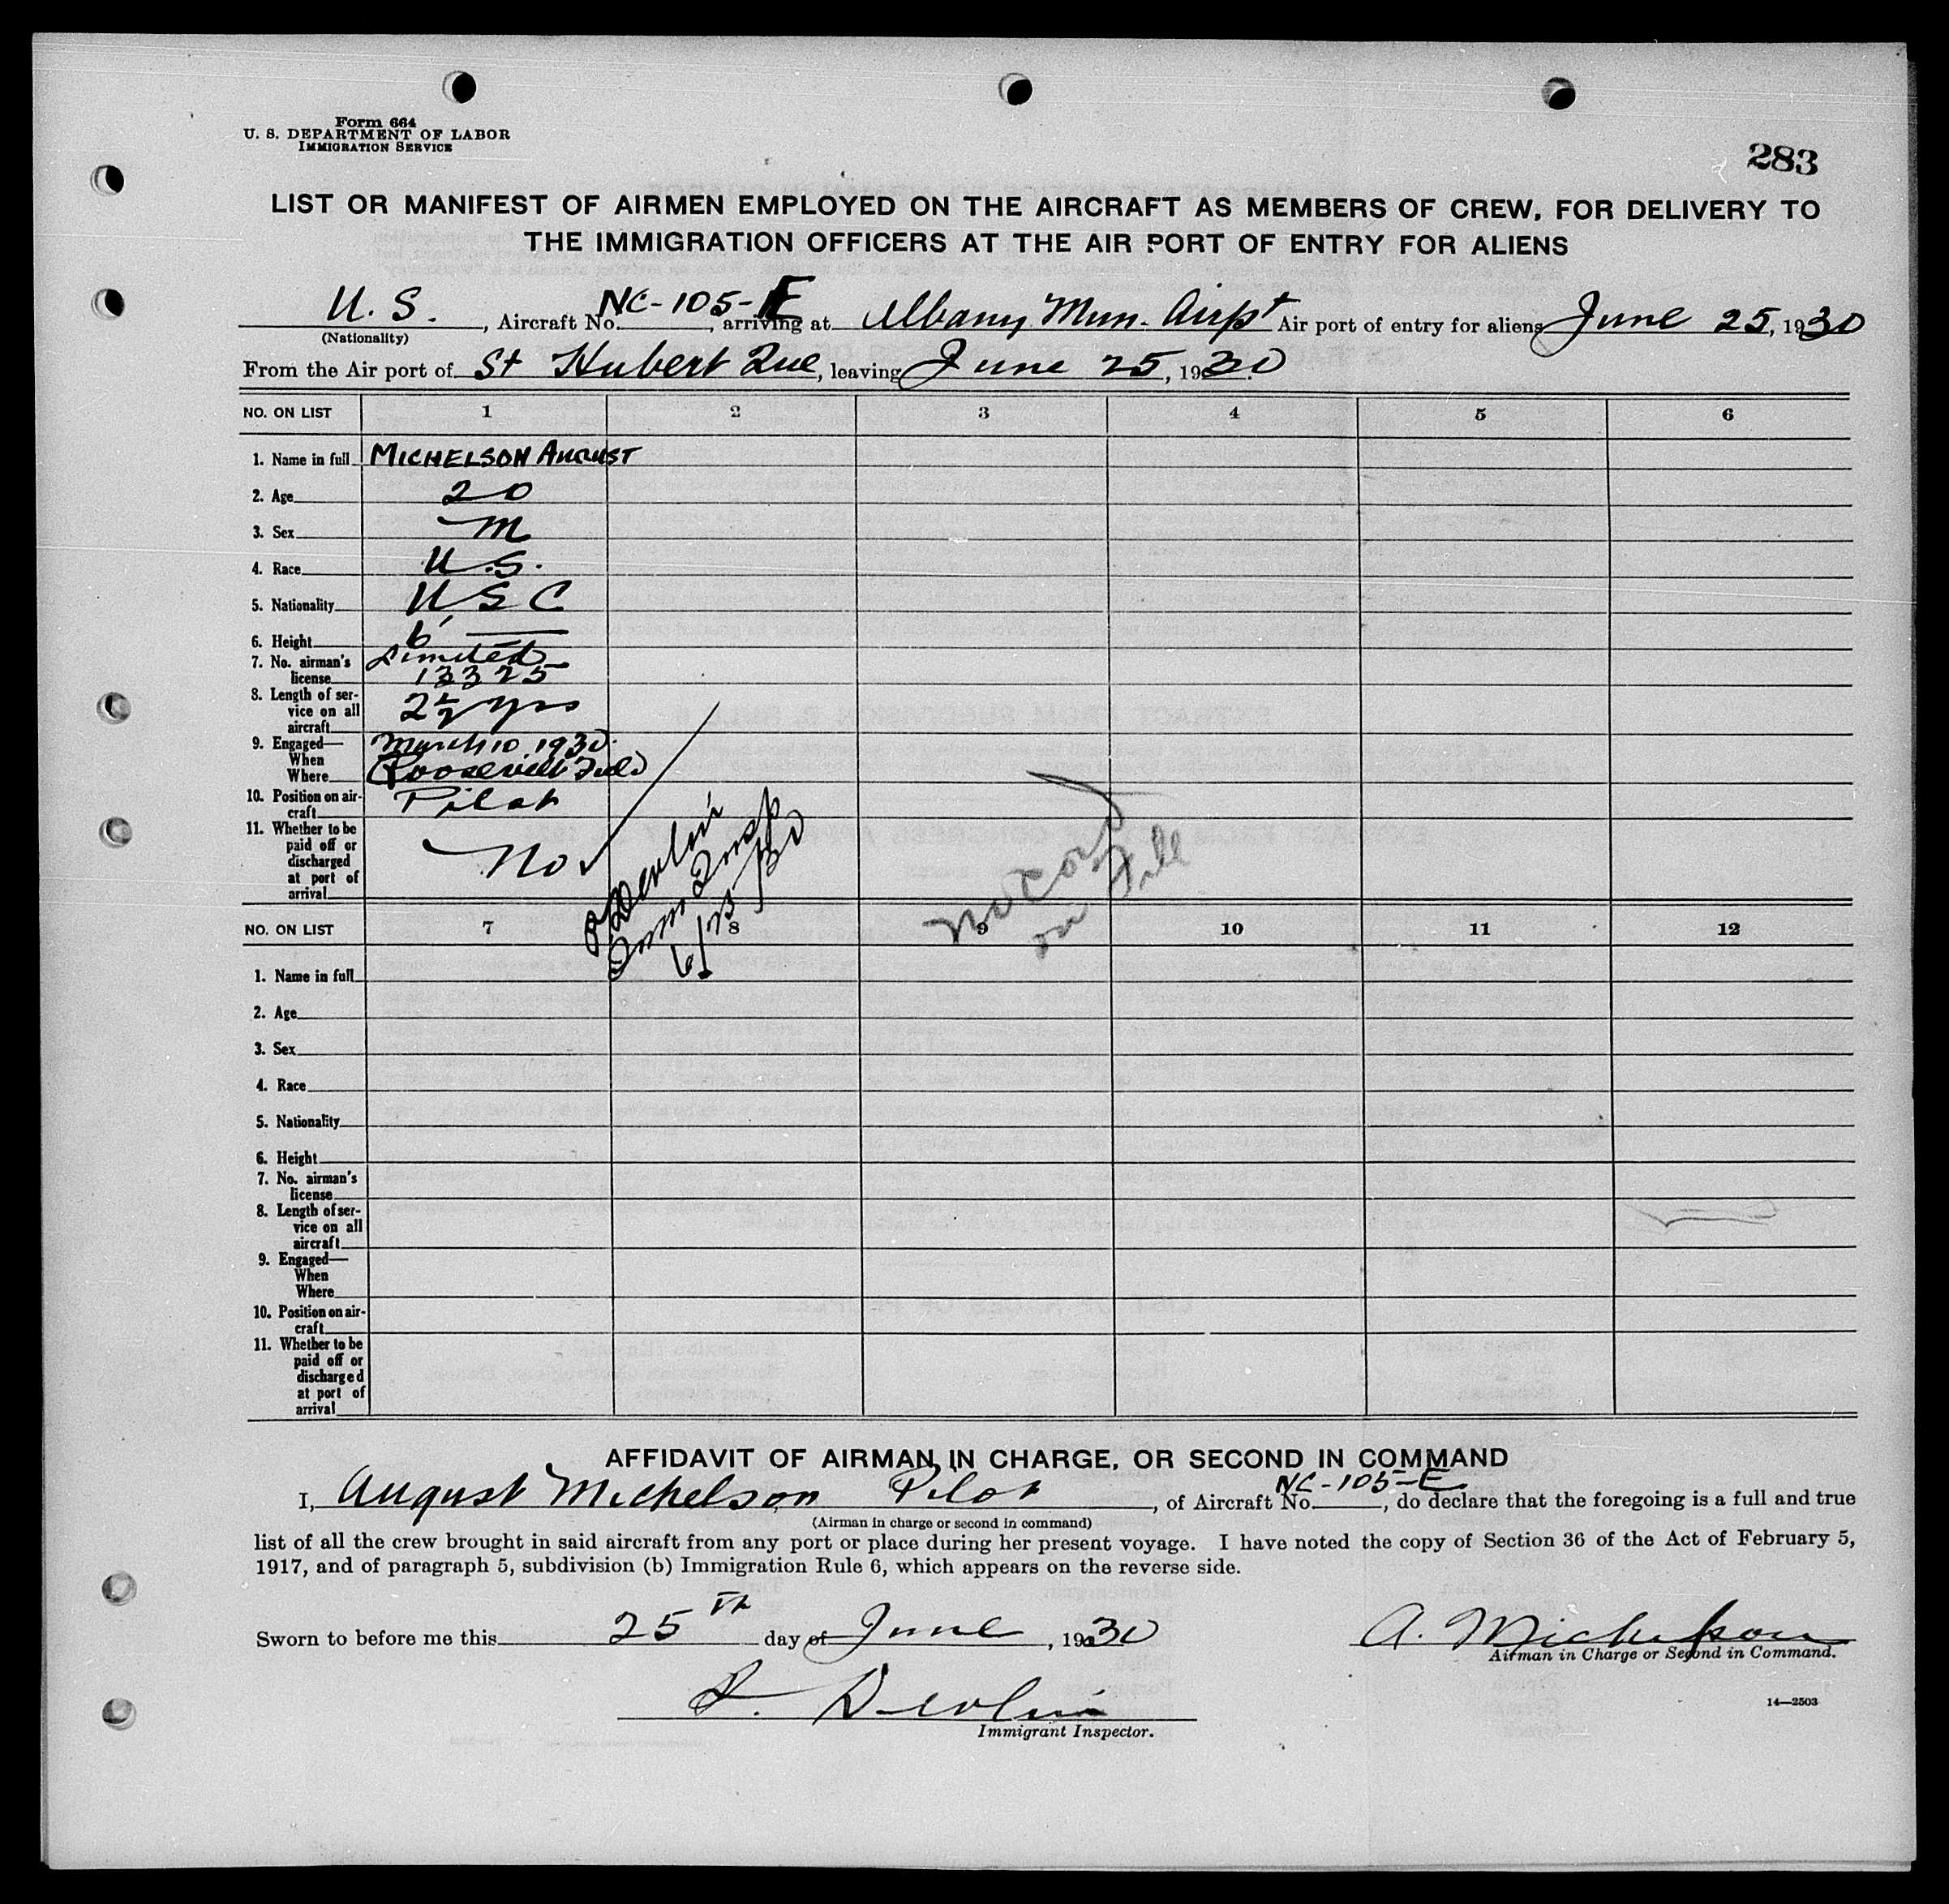 Form 664
U. S. DEPARTMENT OF LABOR
IMMIGRATION SERVICE
283
LIST OR MANIFEST OF AIRMEN EMPLOYED ON THE AIRCRAFT AS MEMBERS OF CREW, FOR DELIVERY TO
THE IMMIGRATION OFFICERS AT THE AIR PORT OF ENTRY FOR ALIENS
U. S., Aircraft No. NC-105-E, arriving at Albany Mun. Airpt Air port of entry for aliens June 25, 1930
(Nationality)
From the Air port of St Hubert Que, leaving June 25, 1930
NO. ON LIST 1 2 3 4 5 6
1. Name in full MICHELSON AUGUST
2. Age 20
3. Sex M
4. Race U.S.
5. Nationality USC
6. Height 6'
7. No. airman's Limited
license 13325
8. Length of ser-
vice on all 2 1/2 yrs
aircraft
9. Engaged— March 10 1930
When
Where Roosevelt Field
10. Position on air- Pilot
craft
11. Whether to be
paid off or
discharged No
at port of
arrival
Devlin
Imm Insp
6/25/30
no card
on file
NO. ON LIST 7 8 9 10 11 12
1. Name in full
2. Age
3. Sex
4. Race
5. Nationality
6. Height
7. No. airman's
license
8. Length of ser-
vice on all
aircraft
9. Engaged—
When
Where
10. Position on air-
craft
11. Whether to be
paid off or
discharged
at port of
arrival
AFFIDAVIT OF AIRMAN IN CHARGE, OR SECOND IN COMMAND
I, August Michelson Pilot, of Aircraft No. NC-105-E, do declare that the foregoing is a full and true
(Airman in charge or second in command)
list of all the crew brought in said aircraft from any port or place during her present voyage. I have noted the copy of Section 36 of the Act of February 5,
1917, and of paragraph 5, subdivision (b) Immigration Rule 6, which appears on the reverse side.
Sworn to before me this 25th day of June, 1930
A. Michelson
Airman in Charge or Second in Command.
Devlin
Immigrant Inspector.
14—2503